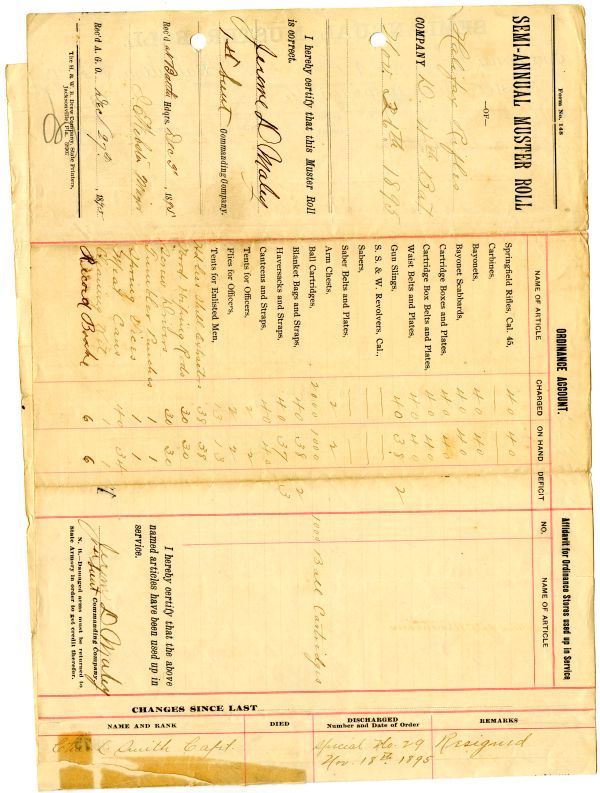 Form No. 148
SEMI-ANNUAL MUSTER ROLL
—OF—
Halifax Rifles
COMPANY
Nov. 1895
I hereby certify that this Muster Roll
is correct.
Jerome D Maley
1st Lieut Commanding Company.
Rec'd at Hdqrs. Dec 9, 1895
Rec'd A. G. O. Dec 27, 1895.
The H. & W. B. Drew Company, State Printers,
Jacksonville, Fla.
ORDINANCE ACCOUNT.
NAME OF ARTICLE CHARGED ON HAND DEFICIT
Springfield Rifles, Cal. 45, 40 40
Carbines, — —
Bayonets, 40 40
Bayonet Scabbards, 40 40
Cartridge Boxes and Plates,
Cartridge Box Belts and Plates, 40 40
Waist Belts and Plates, 40 40
Gun Slings, 40 38 2
S. S. & W. Revolvers, Cal.,
Sabers,
Saber Belts and Plates,
Arm Chests, 2 2
Ball Cartridges, 2000 1000
Blanket Bags and Straps, 40 38 2
Haversacks and Straps, 40 37 3
Canteens and Straps, 40
Tents for Officers, 2 2
Flies for Officers, 2 2
Tents for Enlisted Men, 13 13
38 38
Rods 30 30
30 30
1 1
1 1
40 34
Record Books 6 6
Affidavit for Ordinance Stores used up in Service
NO. NAME OF ARTICLE
1000 Ball Cartridges
I hereby certify that the above
named articles have been used up in
service.
Jerome D Maley
1st Lieut Commanding Company.
N. B.—Damaged arms must be returned to
State Armory in order to get credit therefor.
CHANGES SINCE LAST
NAME AND RANK DIED DISCHARGED REMARKS
Number and Date of Order
C Smith Capt. Special No. 29 Resigned
Nov. 18th 1895